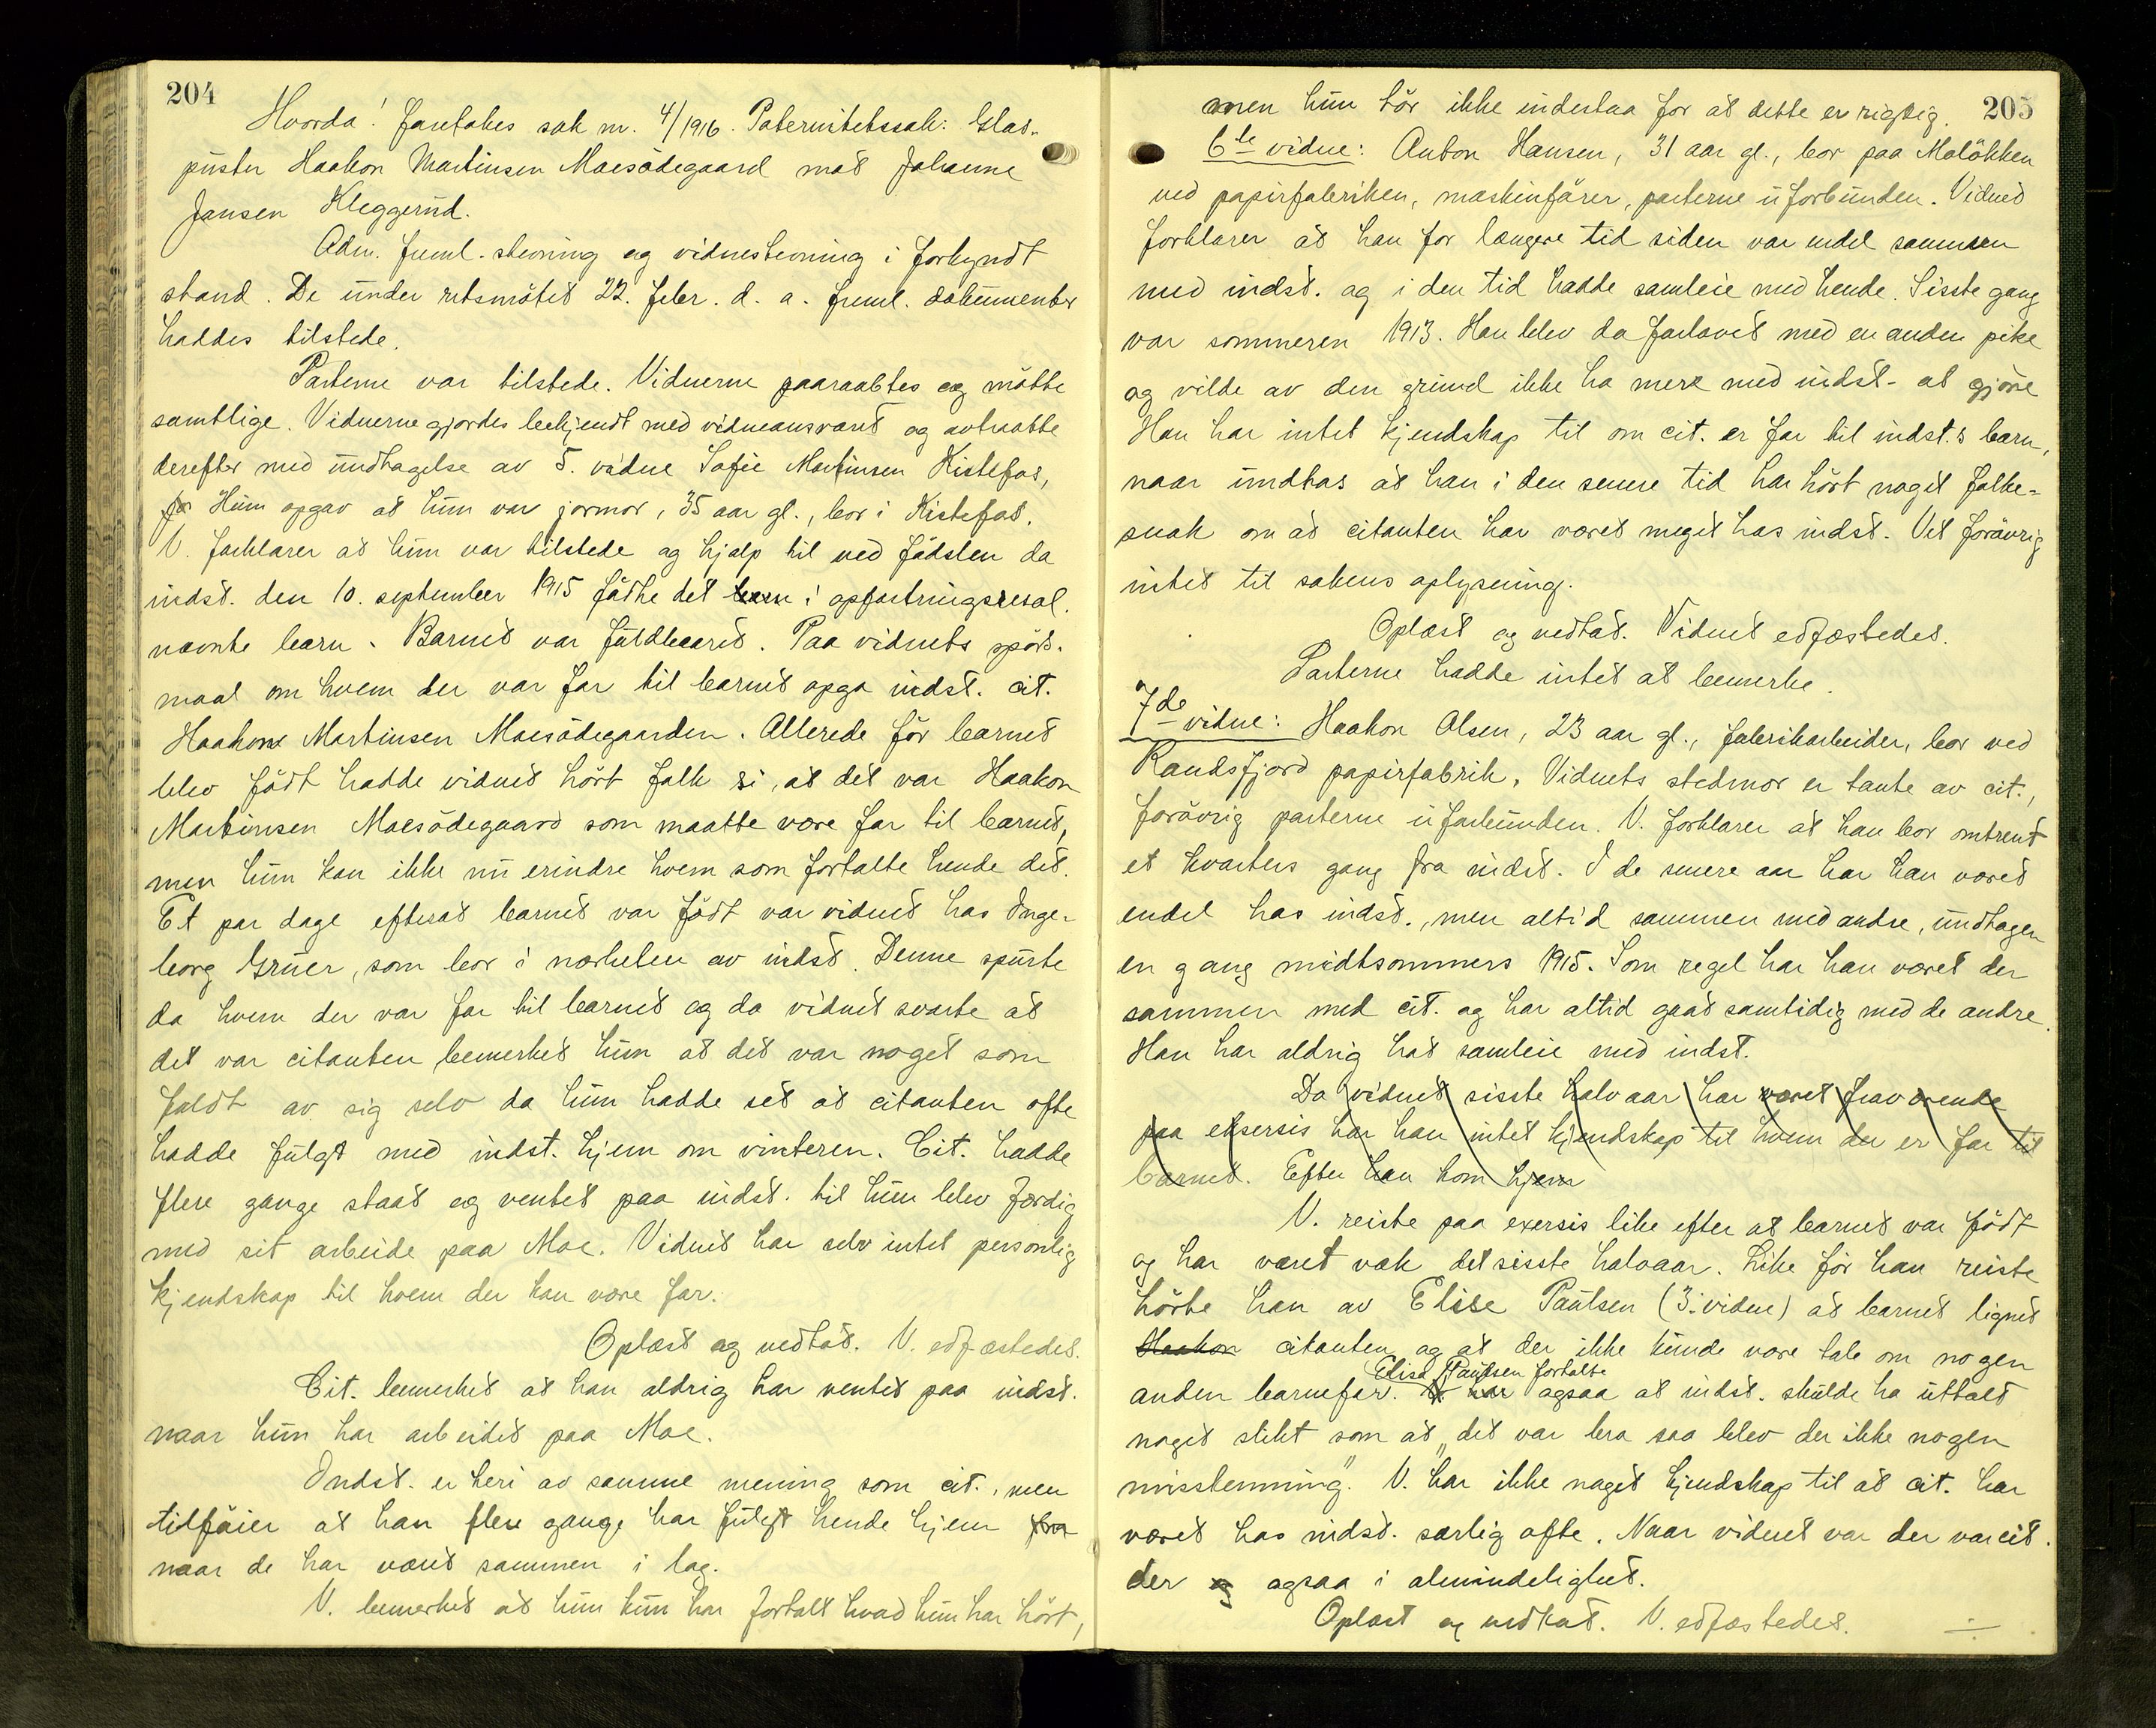 204
Hvorda! Foretokes sak nr. 4/1916. Paternitetssak: Glas-
puster Haakon Martinsen Moesødegaard mot Johanne
Jansen Kleggerud.
Adm. freml. stevning og vidnestevning i forkyndt
stand. De under retsmøtet 22. febr. d. a. freml. dokumenter
haddes tilstede.
Parterne var tilstede. Vidnerne paaraabtes og møtte
samtlige. Vidnerne gjordes bekjendt med vidneansvaret og avtraatte
derefter med undtagelse av 5. vidne Sofie Martinsen Kistefos,
for Hun opgav at hun var jormor, 35 aar gl., bor i Kistefos.
V. forklarer at hun var tilstede og hjalp til ved fødslen da
indst. den 10. september 1915 fødte det barn i opfostringsresol.
nævnte barn. Barnet var fuldbaaret. Paa vidnets spørs-
maal om hvem der var far til barnet opga indst. cit.
Haakon Martinsen Moesødegaarden. Allerede før barnet
blev født hadde vidnet hørt folk si, at det var Haakon
Martinsen Moesødegaard som maatte være far til barnet,
men hun kan ikke nu erindre hvem som fortalte hende det.
Et par dage efterat barnet var født var vidnet hos Inge-
borg Gruer, som bor i nærheten av indst. Denne spurte
da hvem der var far til barnet og da vidnet svarte at
det var citanten bemerket hun at det var noget som
faldt av sig selv da hun hadde set at citanten ofte
hadde fulgt med indst. hjem om vinteren. Cit. hadde
flere gange staat og ventet paa indst. til hun blev færdig
med sit arbeide paa Moe. Vidnet har selv intet personlig
kjendskap til hvem der kan være far.
Oplæst og vedtat. V. edfæstedes.
Cit. bemerket at han aldrig har ventet paa indst.
naar hun har arbeidet paa Moe.
Indst. er heri av samme mening som cit., men
tilføier at han flere gange har fulgt hende hjem fra
naar de har været sammen i lag.
V. bemerket at hun kun har fortalt hvad hun har hørt,
205
men hun tør ikke indestaa for at dette er rigtig.
6te vidne: Anton Hansen, 31 aar gl., bor paa Moløkken
ved papirfabriken, maskinfører, parterne uforbunden. Vidnet
forklarer at han for længere tid siden var endel sammen
med indst. og i den tid hadde samleie med hende. Sisste gang
var sommeren 1913. Han blev da forlovet med en anden pike
og vilde av den grund ikke ha mere med indst. at gjøre
Han har intet kjendskap til om cit. er far til indst.s barn,
naar undtas at han i den senere tid har hørt noget folke-
snak om at citanten har været meget hos indst. Vet forøvrig
intet til sakens oplysning.
Oplæst og vedtat. Vidnet edfæstedes.
Parterne hadde intet at bemerke.
7de vidne: Haakon Olsen, 23 aar gl., fabrikarbeider, bor ved
Randsfjord papirfabrik, Vidnets stedmor er tante av cit.,
forøvrig parterne uforbunden. V. forklarer at han bor omtrent
et kvarters gang fra indst. I de senere aar har han været
endel hos indst., men altid sammen med andre, undtagen
en gang midtsommers 1915. Som regel har han været der
sammen med cit. og har altid gaat samtidig med de andre.
Han har aldrig hat samleie med indst.
Da vidnet sisste halvaar har været fraværende
paa eksersis har han intet kjendskap til hvem der er far til
barnet. Efter han kom hjem
V. reiste paa exersis like efter at barnet var født
og har været væk det sisste halvaar. Like før han reiste
hørte han av Elise Paulsen (3. vidne) at barnet lignet
Haakon citanten og at der ikke kunde være tale om nogen
Elise Paulsen fortalte
anden barnefar. V. har ogsaa at indst. skulde ha uttalt
noget slikt som at "det var bra saa blev der ikke nogen
misstemning". V. har ikke noget kjendskap til at cit. har
været hos indst. særlig ofte. Naar vidnet var der var cit.
der og ogsaa i almindelighet.
Oplæst og vedtat. V. edfæstedes.